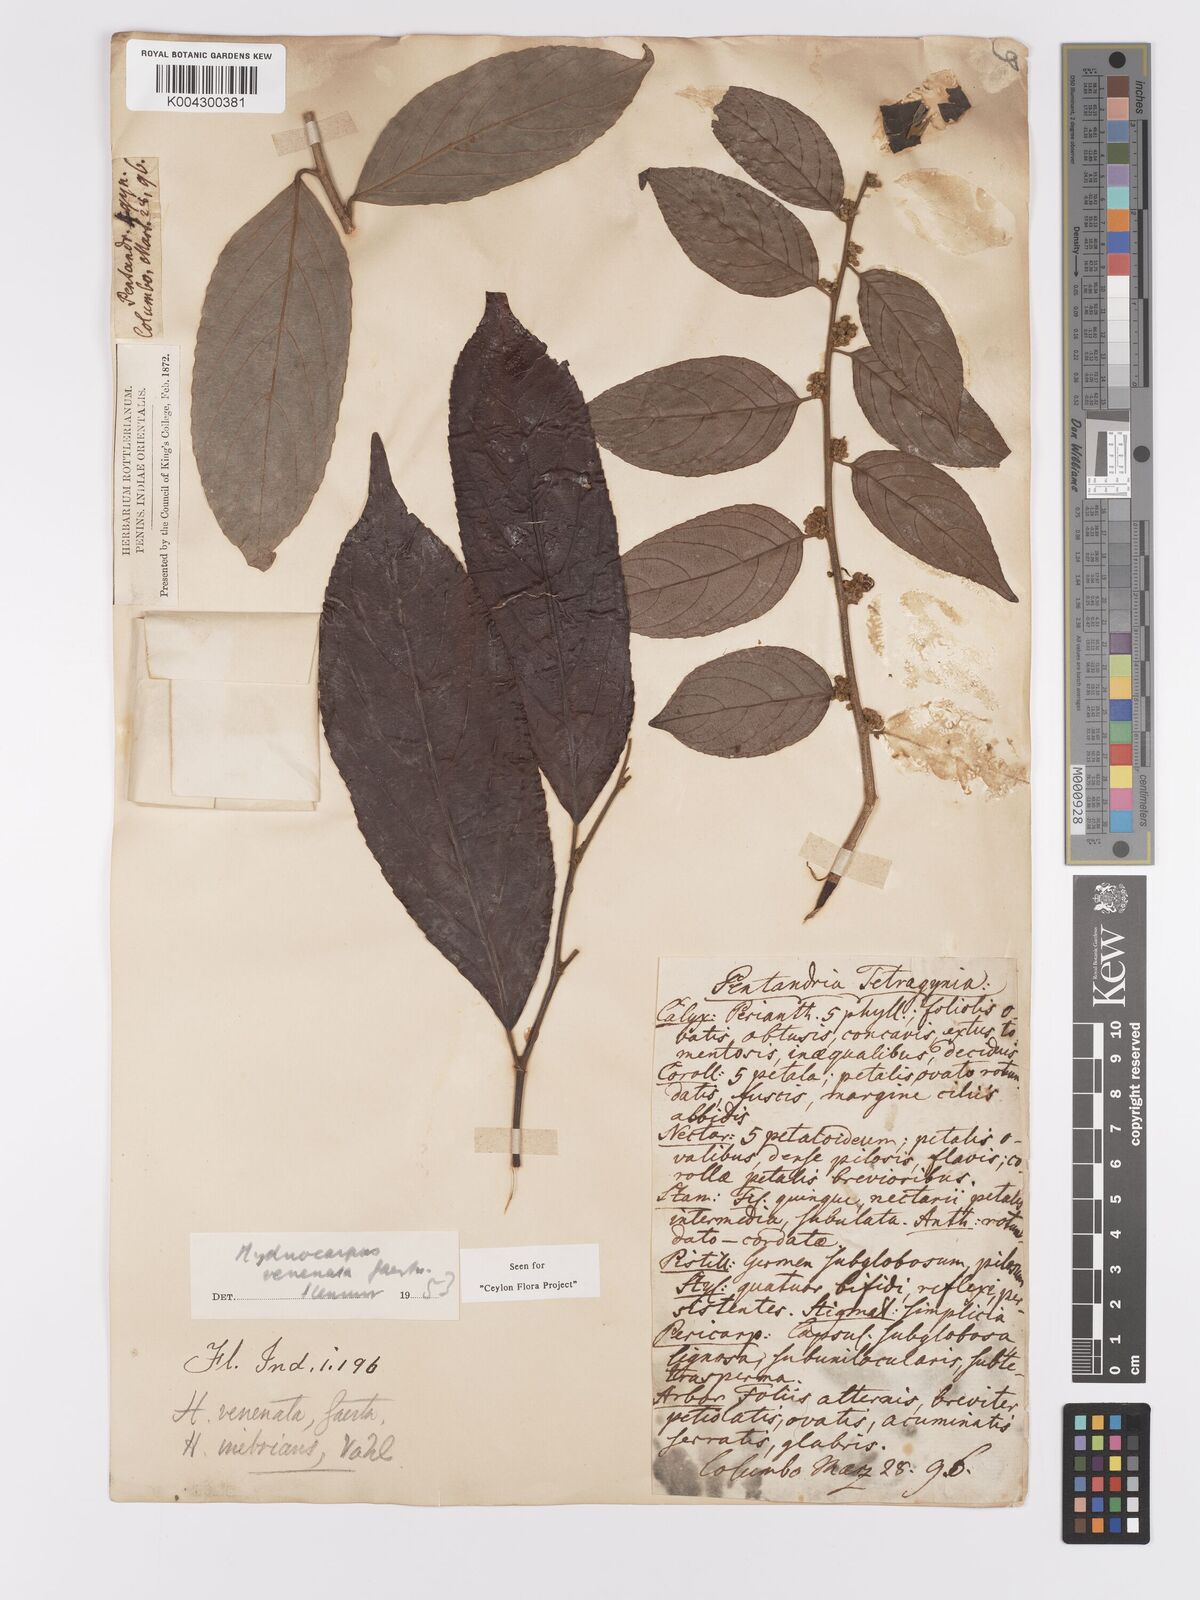 ROYAL BOTANIC GARDENS KEW
K004300381
Pentandr. gyn.
Columbo, Mart. 28, 96.
HERBARIUM ROTTLERIANUM.
PENINS. INDIAE ORIENTALIS.
Presented by the Council of King's College, Feb. 1872.
Pentandria Tetragynia:
Calyx: Perianth. 5 phyll.; foliolis o-
batis, obtusis, concavis, extus to
mentosis, inæqualibus, deciduis
Coroll: 5 petala; petalis ovato rotun
datis, fuscis, margine ciliis
albidis
Nectar: 5 petaloideum; petalis o-
valibus, dense pilosis, flavis; co
rollæ petalis brevioribus.
Stam: Fil. quinque, nectarii petalis
intermedia, subulata. Anth: rotun-
dato-cordatæ.
Pistill: Germen subglobosum, pilosum
Styl: quatuor bifidi, reflexi, per-
sistentes. Stigmat: simplicia
Pericarp: Capsul. subglobosa
lignosa, subunilocularis, subte-
trasperma.
Arbor Foliis alternis, breviter
petiolatis, ovatis, acuminatis
serratis, glabris.
Columbo Marz 28. 96.
Hydnocarpus
venenata Gaertn.
DET. Sleumer 1953
Seen for
"Ceylon Flora Project"
Fl. Ind. i. 196
H. venenata, Gaertn,
H. inebrians, Vahl
inches
centimeters
Density
Don Williams
M000928
Royal Botanic Gardens
Kew
0 1 2 3 4 5 6 7 8 9 10
copyright reserved